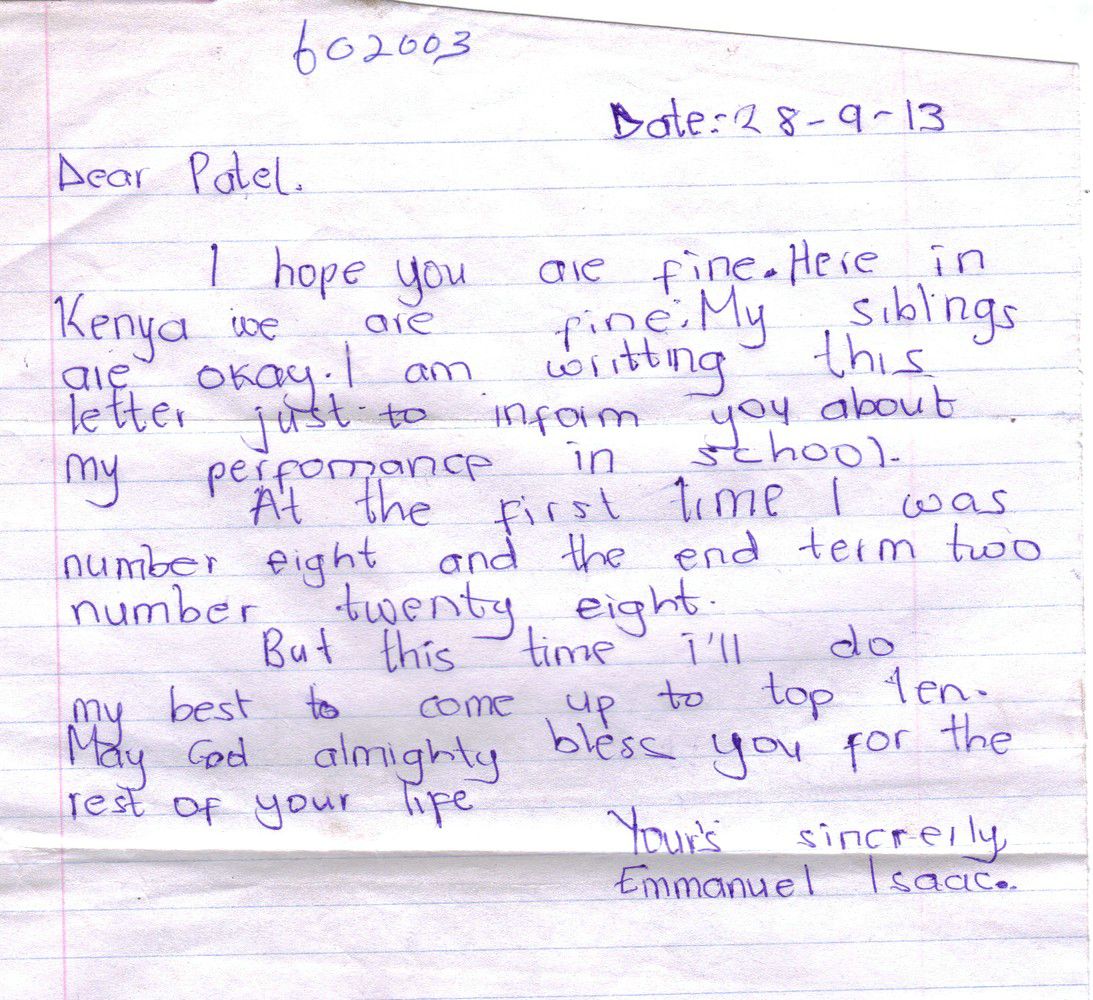 602003
Date:-28-9-13
Dear Patel.
I hope you are fine. Here in
Kenya we are fine. My siblings
are okay. I am writting this
letter just to inform you about
my perfomance in school.
At the first time I was
number eight and the end term two
number twenty eight.
But this time i'll do
my best to come up to top ten.
May God almighty bless you for the
rest of your life
Your's sincreily
Emmanuel Isaac.